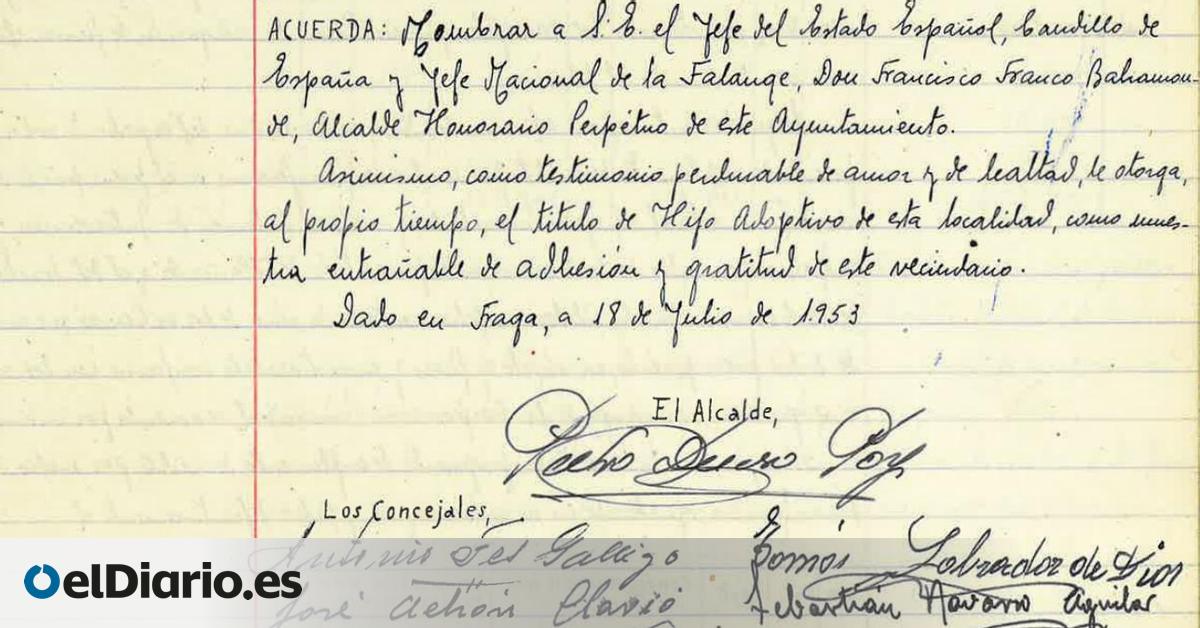 ACUERDA: Nombrar a S. E. el Jefe del Estado Español, Caudillo de
España y Jefe Nacional de la Falange, Don Francisco Franco Bahamon-
de, Alcalde Honorario Perpétuo de este Ayuntamiento.
Asimismo, como testimonio perdurable de amor y de lealtad, le otorga,
al propio tiempo, el titulo de Hijo Adoptivo de esta localidad, como mues-
tra entrañable de adhesión y gratitud de este vecindario.
Dado en Fraga, a 18 de Julio de 1.953
El Alcalde,
Los Concejales,
Antonio Gallego
Labrador de Dios
José
Sebastián Navarro Aguilar
elDiario.es